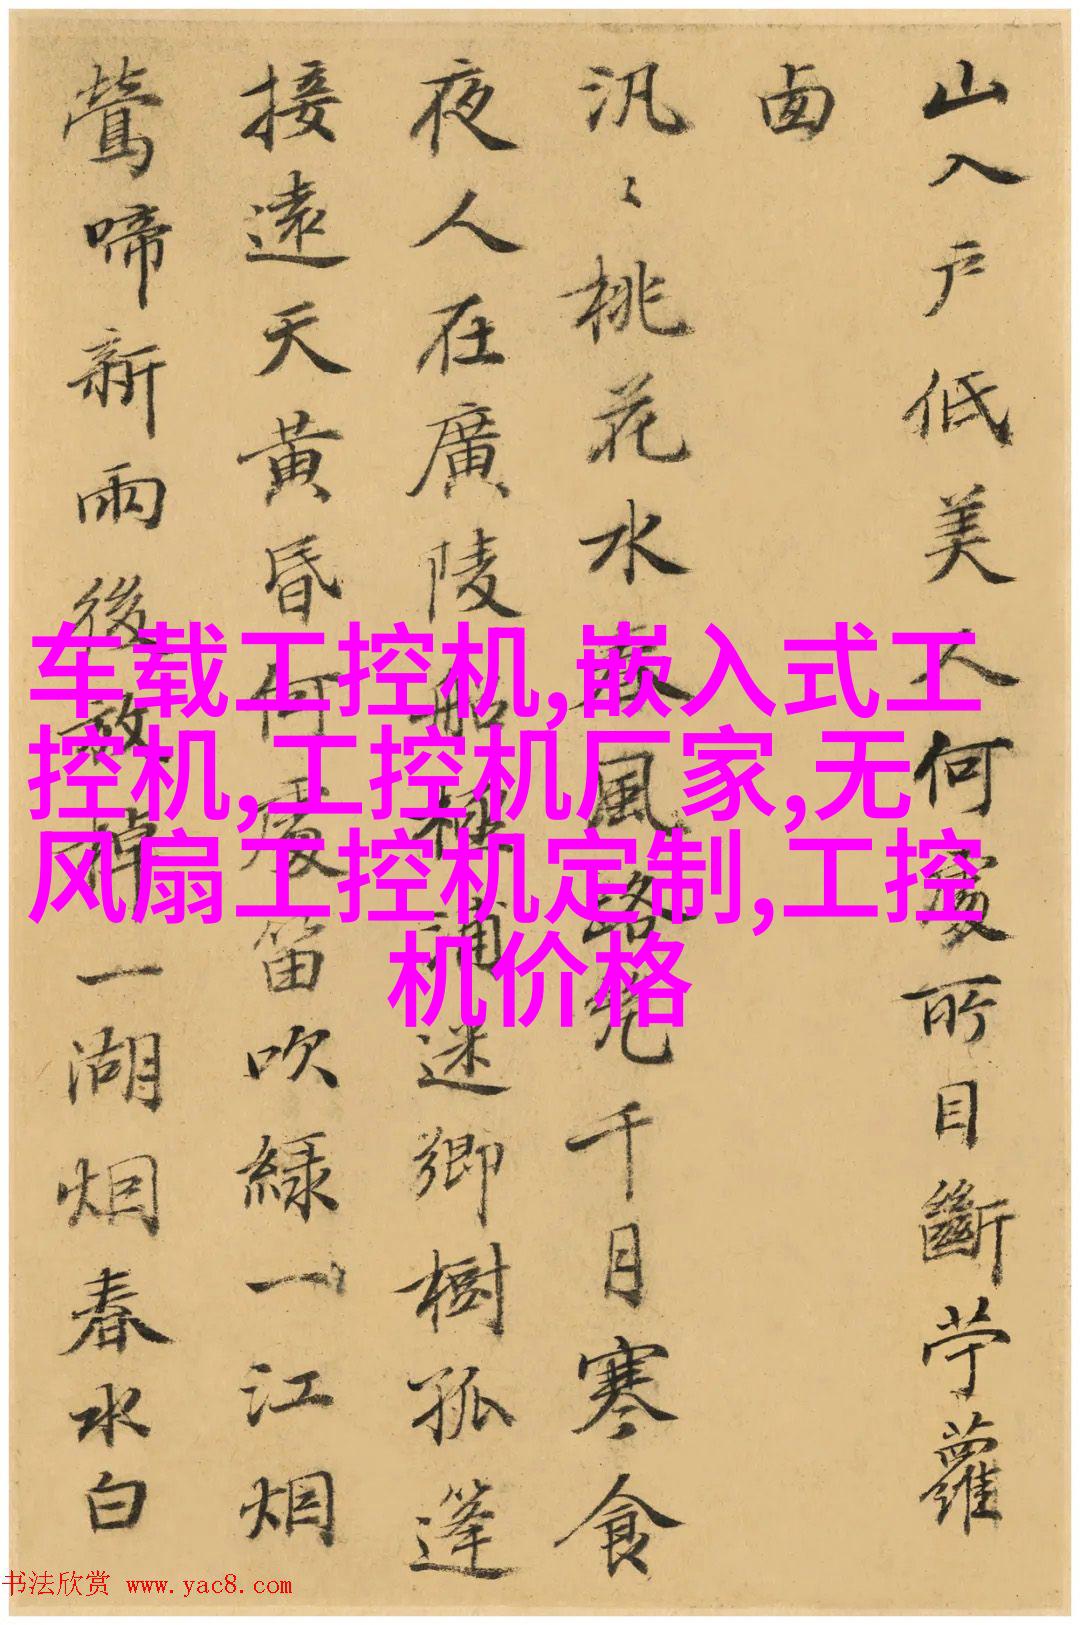 山入户低美人何處所目斷苧蘿
西
汎〻桃花水春風路千月寒食
夜人在廣陵船極浦迷鄉樹孤篷
接遠天黄昏何處笛吹緑一江烟
鶯啼新雨後放棹一湖烟春水白
车载工控机,嵌入式工
控机,工控机厂家,无
风扇工控机定制,工控
机价格
书法欣赏 www.yac8.com